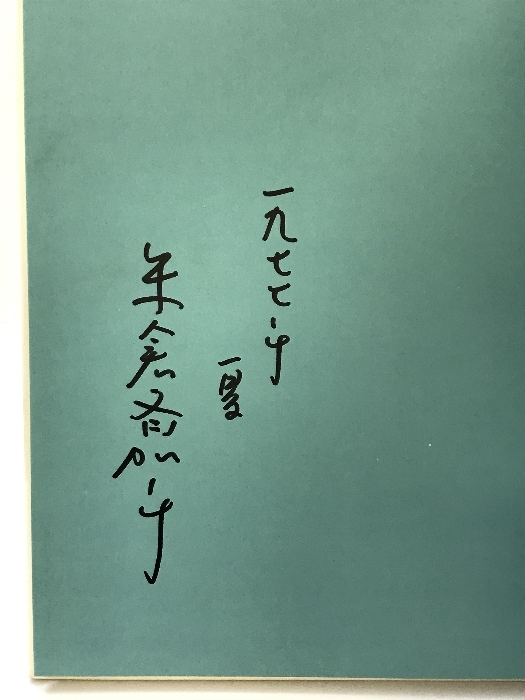 一九七七年
夏
米倉斉加年